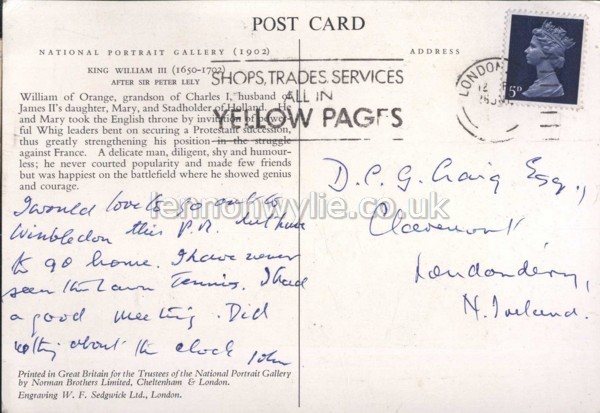 POST CARD
NATIONAL PORTRAIT GALLERY (1902)
ADDRESS
KING WILLIAM III (1650-1702)
AFTER SIR PETER LELY
William of Orange, grandson of Charles I, husband of
James II's daughter, Mary, and Stadholder of Holland. He
and Mary took the English throne by invitation of power-
ful Whig leaders bent on securing a Protestant succession,
thus greatly strengthening his position in the struggle
against France. A delicate man, diligent, shy and humour-
less; he never courted popularity and made few friends
but was happiest on the battlefield where he showed genius
and courage.
SHOPS, TRADES, SERVICES
ALL IN
YELLOW PAGES
LONDON
12
5D
lennonwylie.co.uk
I would love to go out to
Wimbledon this P.M. but have
to go home. I have never
seen the Lawn Tennis. I had
a good meeting. Did
nothing about the clock John
D. C. G. Craig Esq.,
Claremont,
Londonderry,
N. Ireland.
Printed in Great Britain for the Trustees of the National Portrait Gallery
by Norman Brothers Limited, Cheltenham & London.
Engraving W. F. Sedgwick Ltd., London.